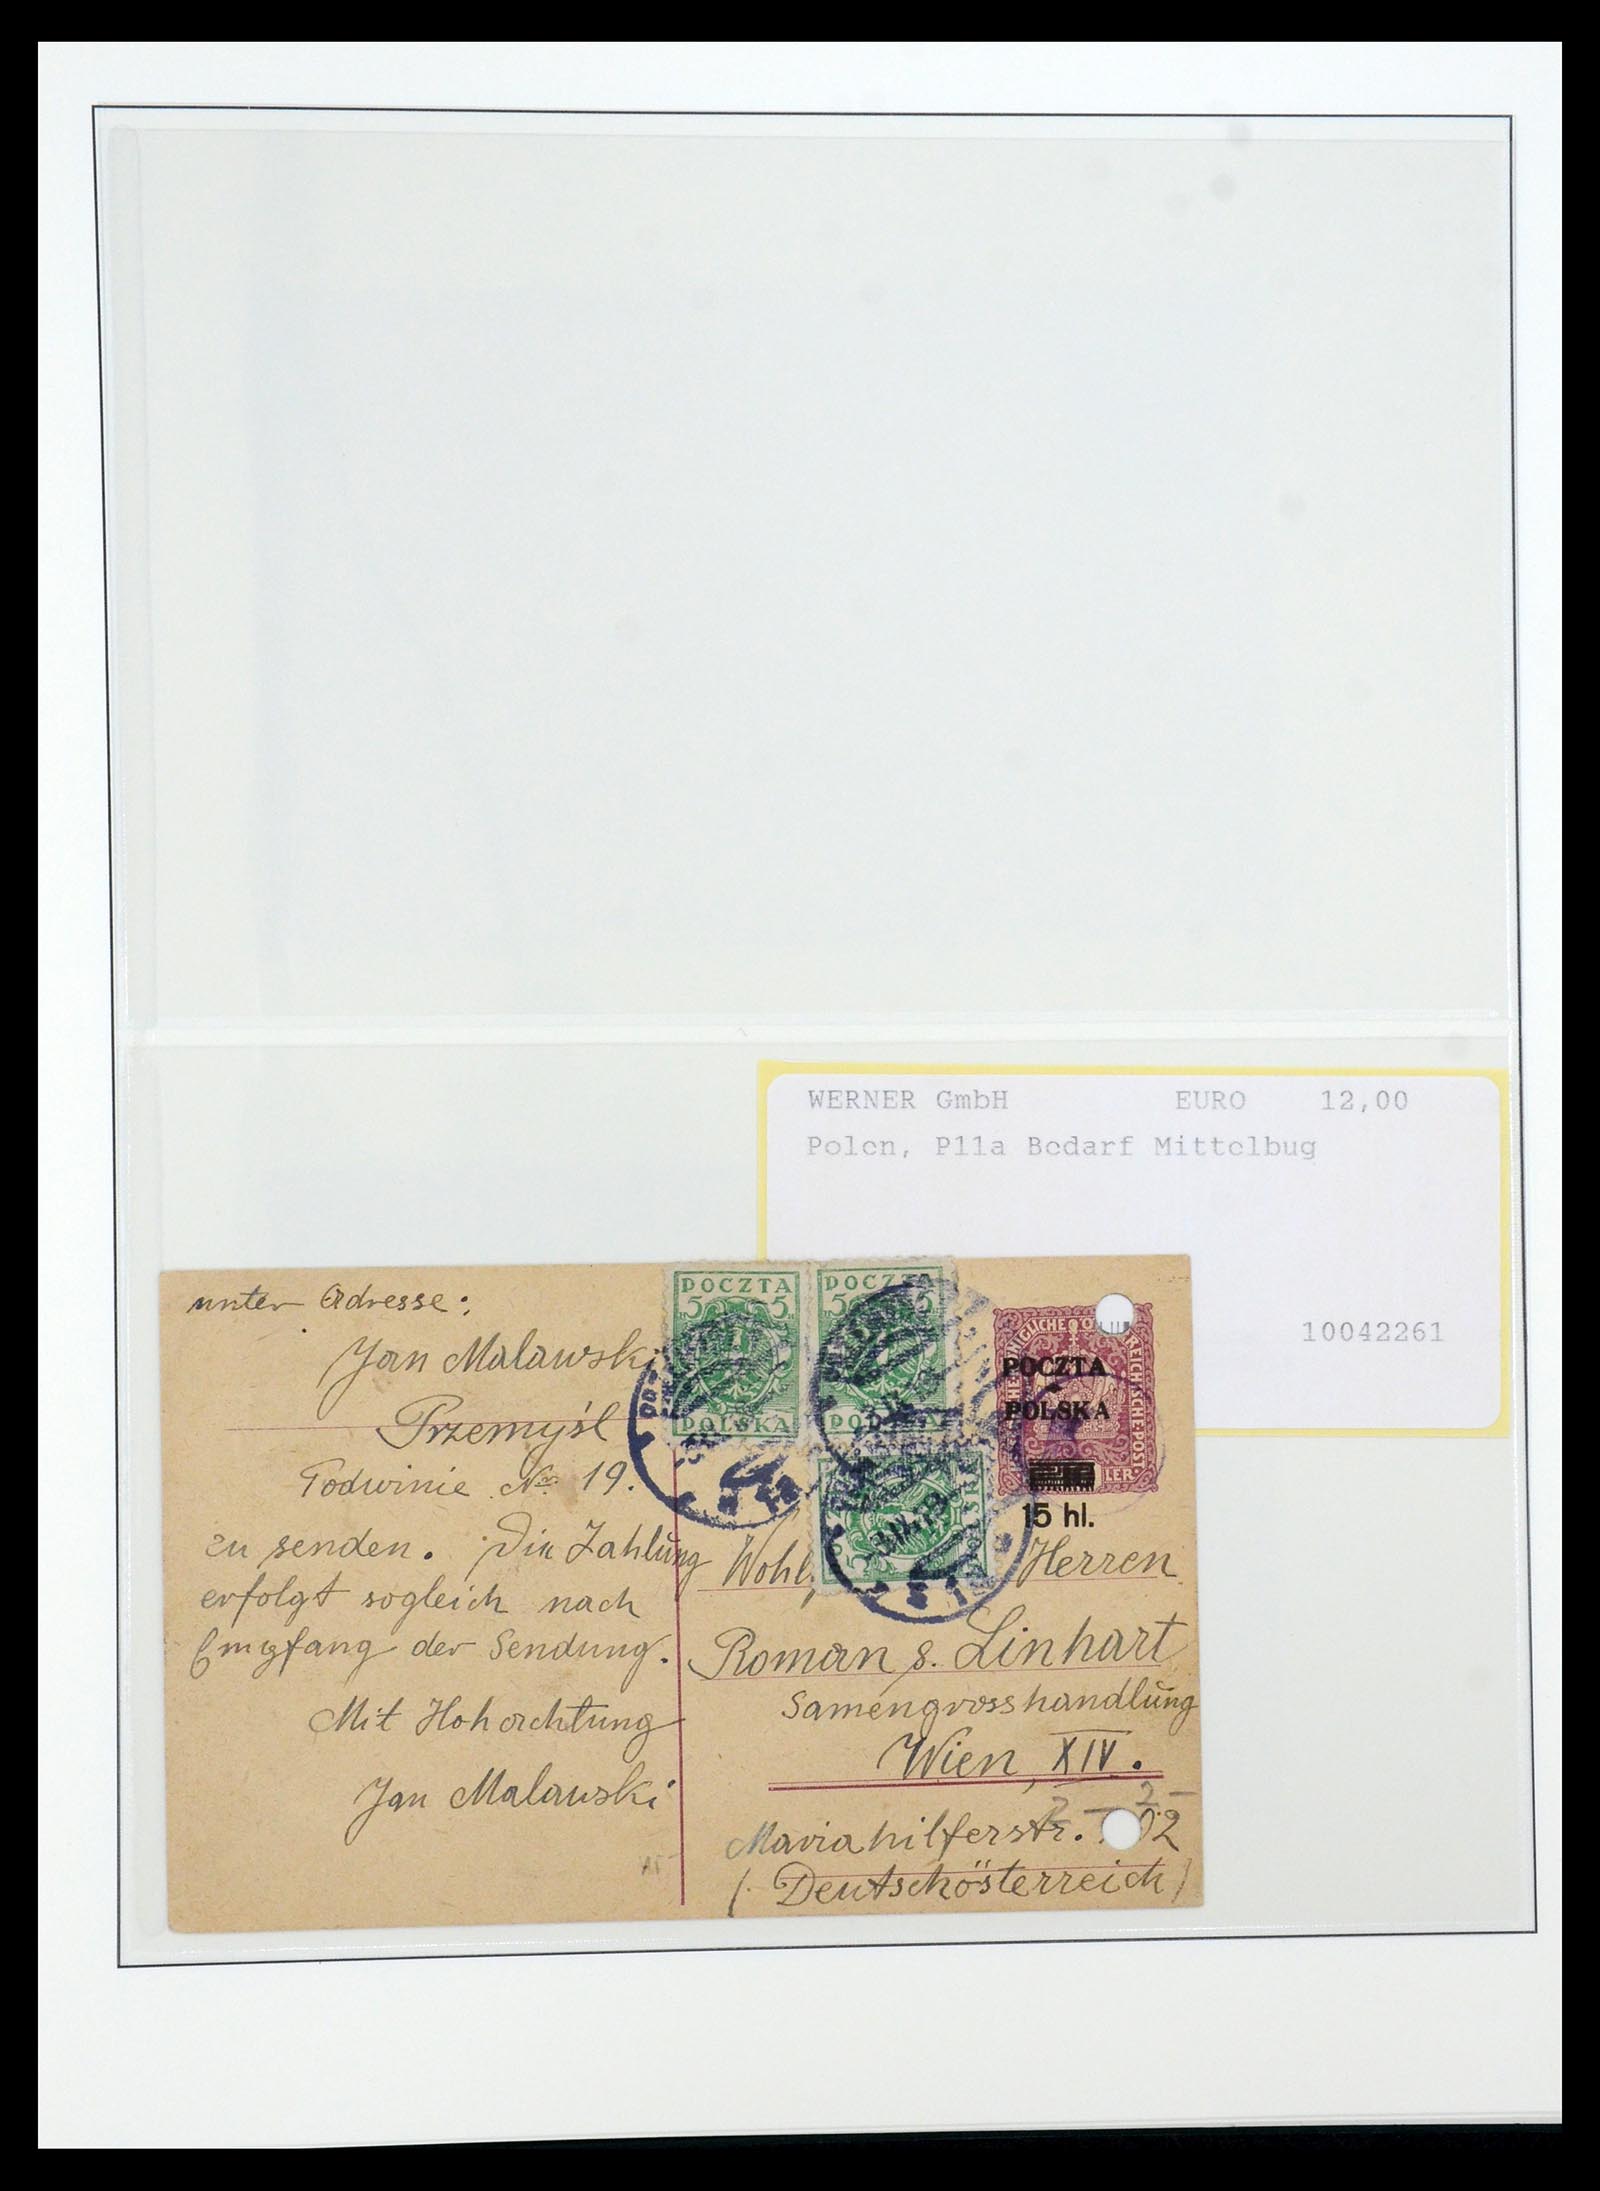 WERNER GmbH EURO 12,00
Polen, P11a Bedarf Mittelbug
10042261
unter Adresse:
Jan Malawski
Przemyśl
Podwinie No 19.
zu senden. Die Zahlung
erfolgt sogleich nach
Empfang der Sendung.
Mit Hohachtung
Jan Malawski
POCZTA
5 5
POLSKA
POCZTA
5 5
POLSKA
5
POLSKA
POCZTA
POLSKA
LER.
15 hl.
Wohl. Herren
Roman s. Linhart
Samengrosshandlung
Wien, XIV.
Mariahilferstr. 02
(Deutschösterreich)